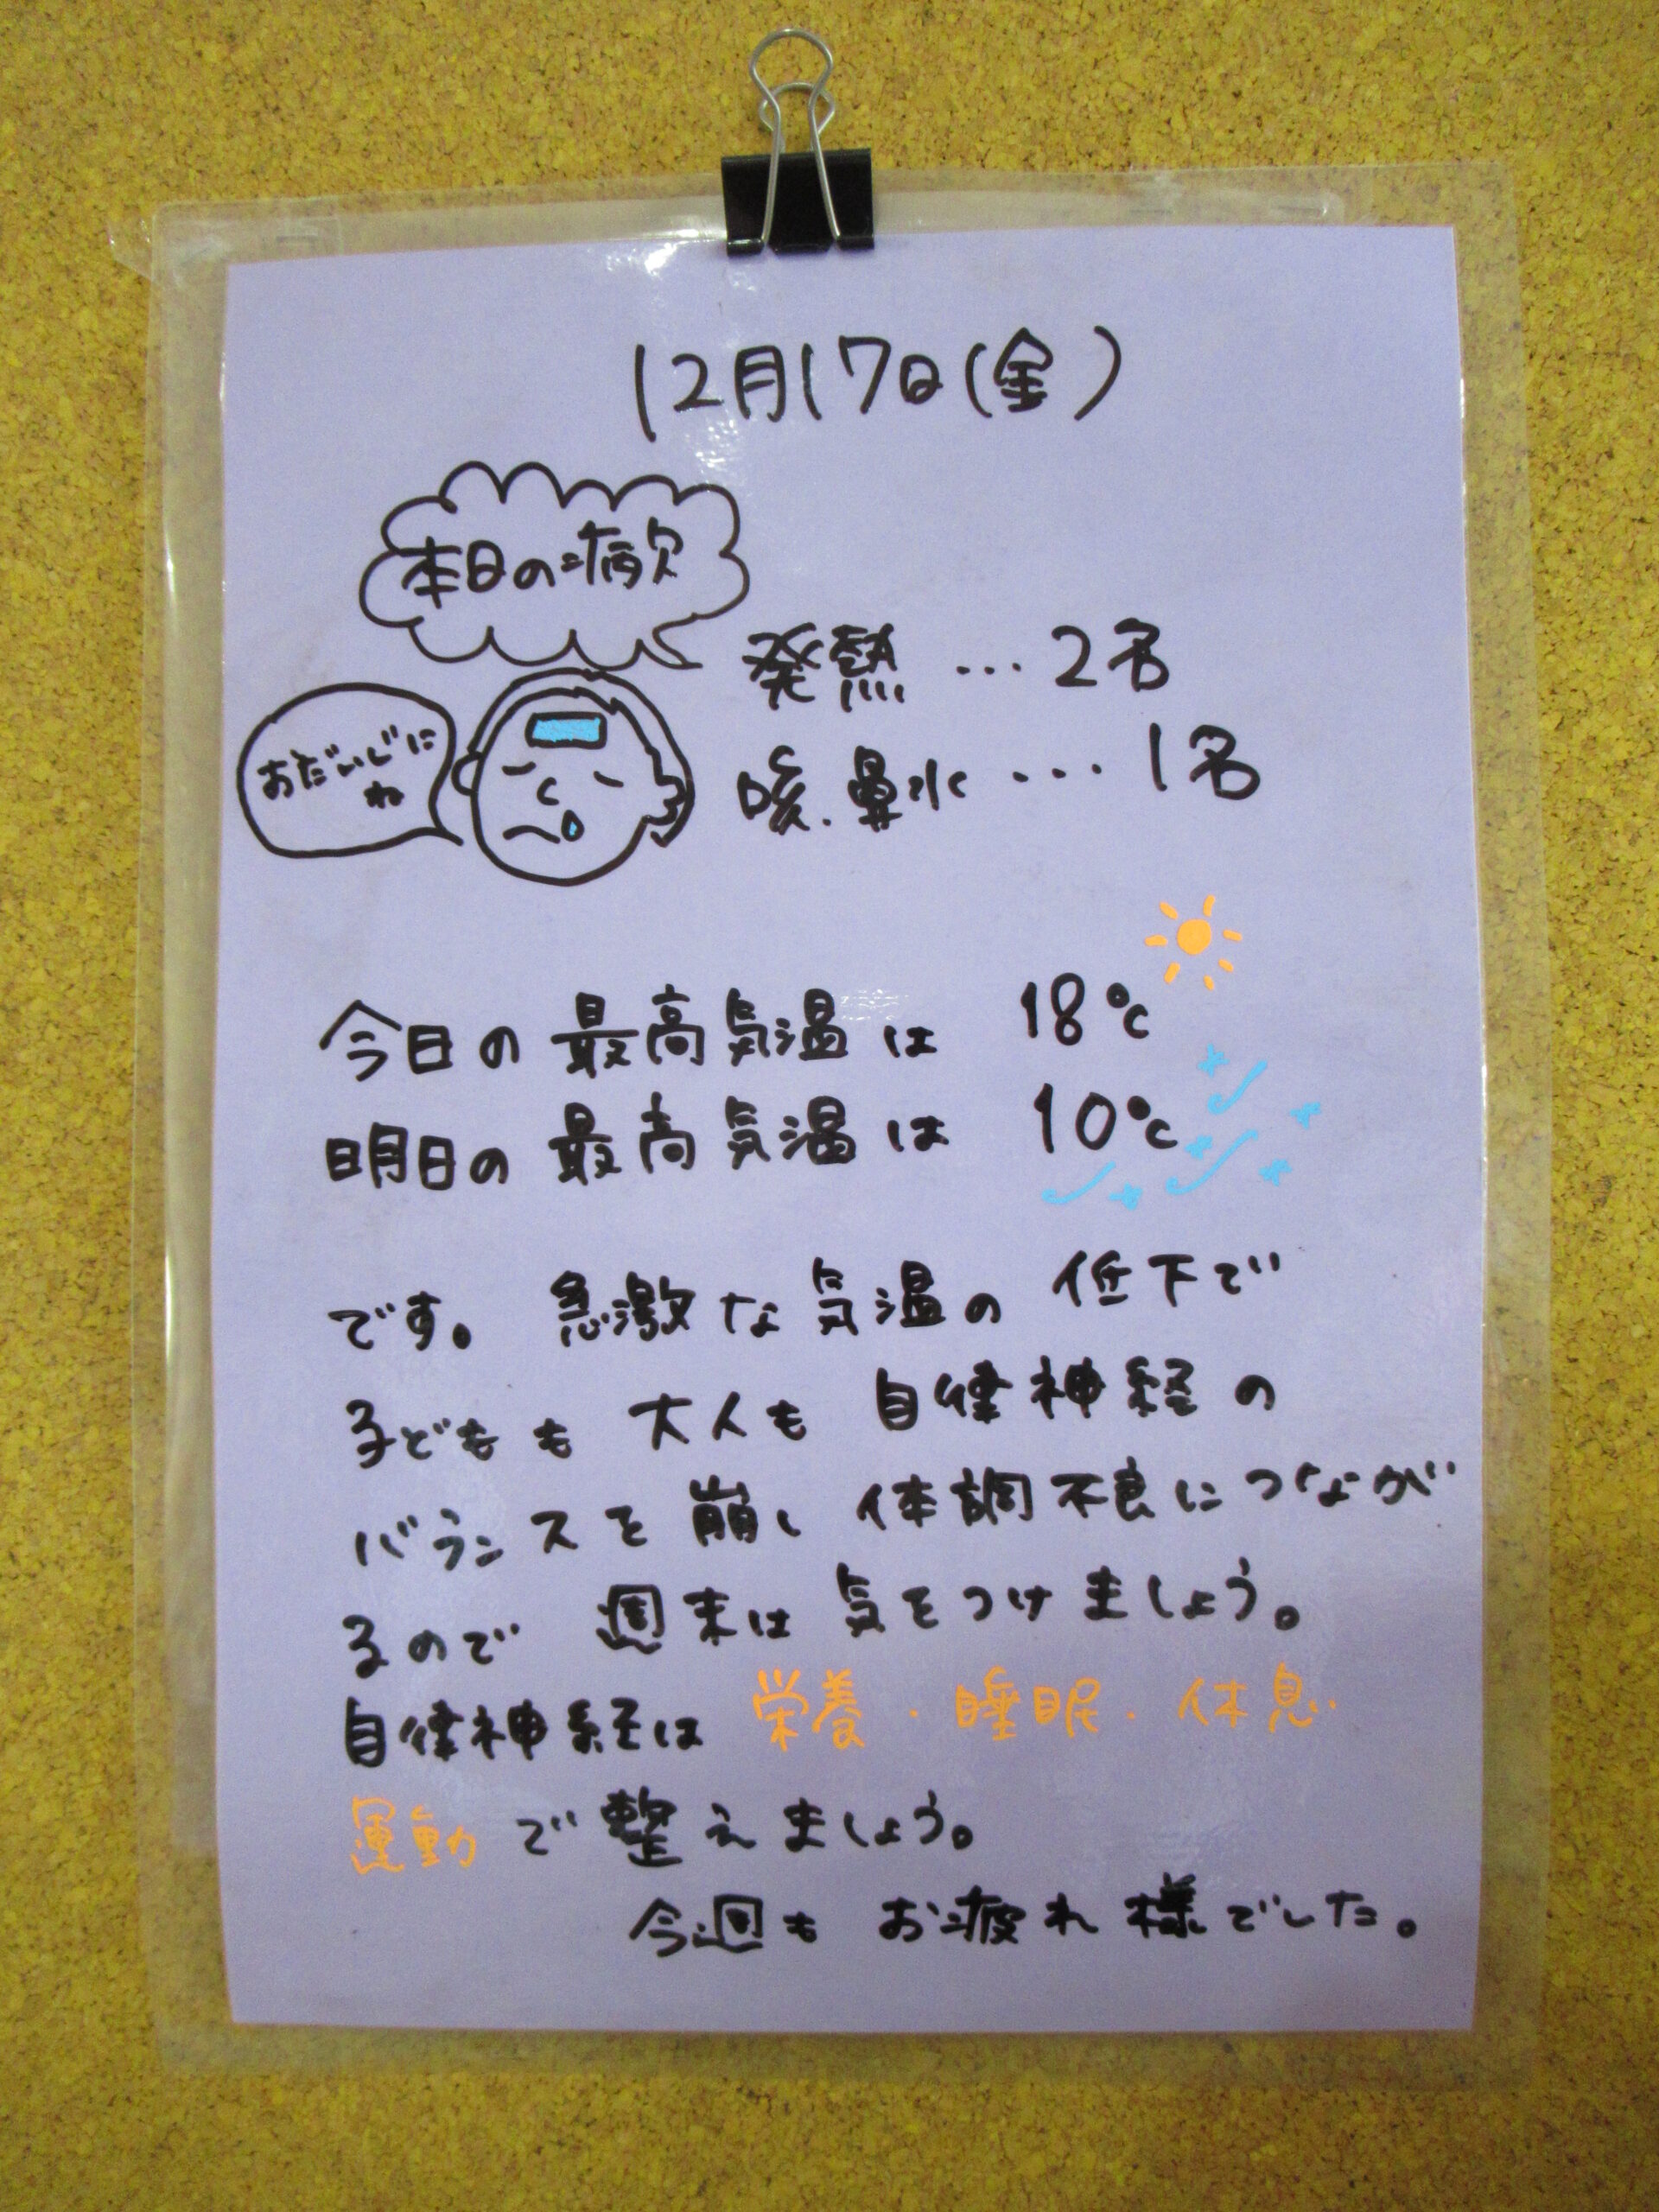 12月17日(金)
本日の病欠
発熱…2名
おだいじに
ね
咳.鼻水…1名
今日の最高気温は 18℃
明日の最高気温は 10℃
です。急激な気温の低下で
子どもも大人も自律神経の
バランスを崩し体調不良につなが
るので週末は気をつけましょう。
自律神経は 栄養・睡眠・休息
運動で整えましょう。
今週もお疲れ様でした。